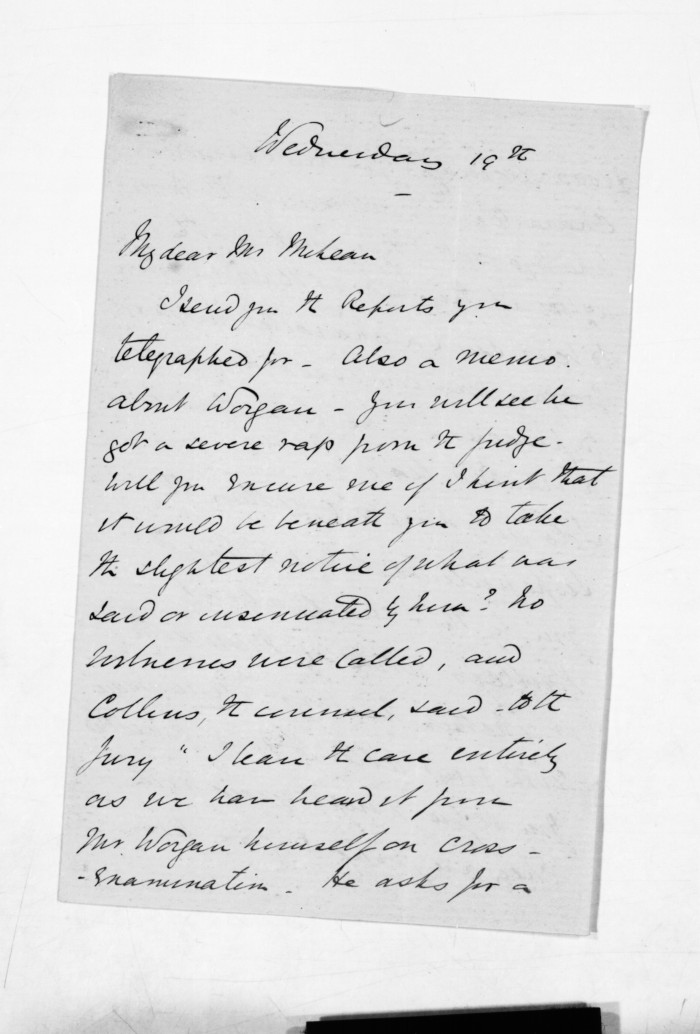 Wednesday 19th
My dear Mr McLean
I send you the Reports you
telegraphed for - Also a memo.
about Worgan - you will see he
got a severe rap from the judge -
will you excuse me if I hint that
it would be beneath you to take
the slightest notice of what was
said or insinuated by him? No
witnesses were called, and
Collins, the counsel, said - to the
jury "I leave the case entirely
as we have heard it from
Mr. Worgan himself on cross-
-examination. He asks for a